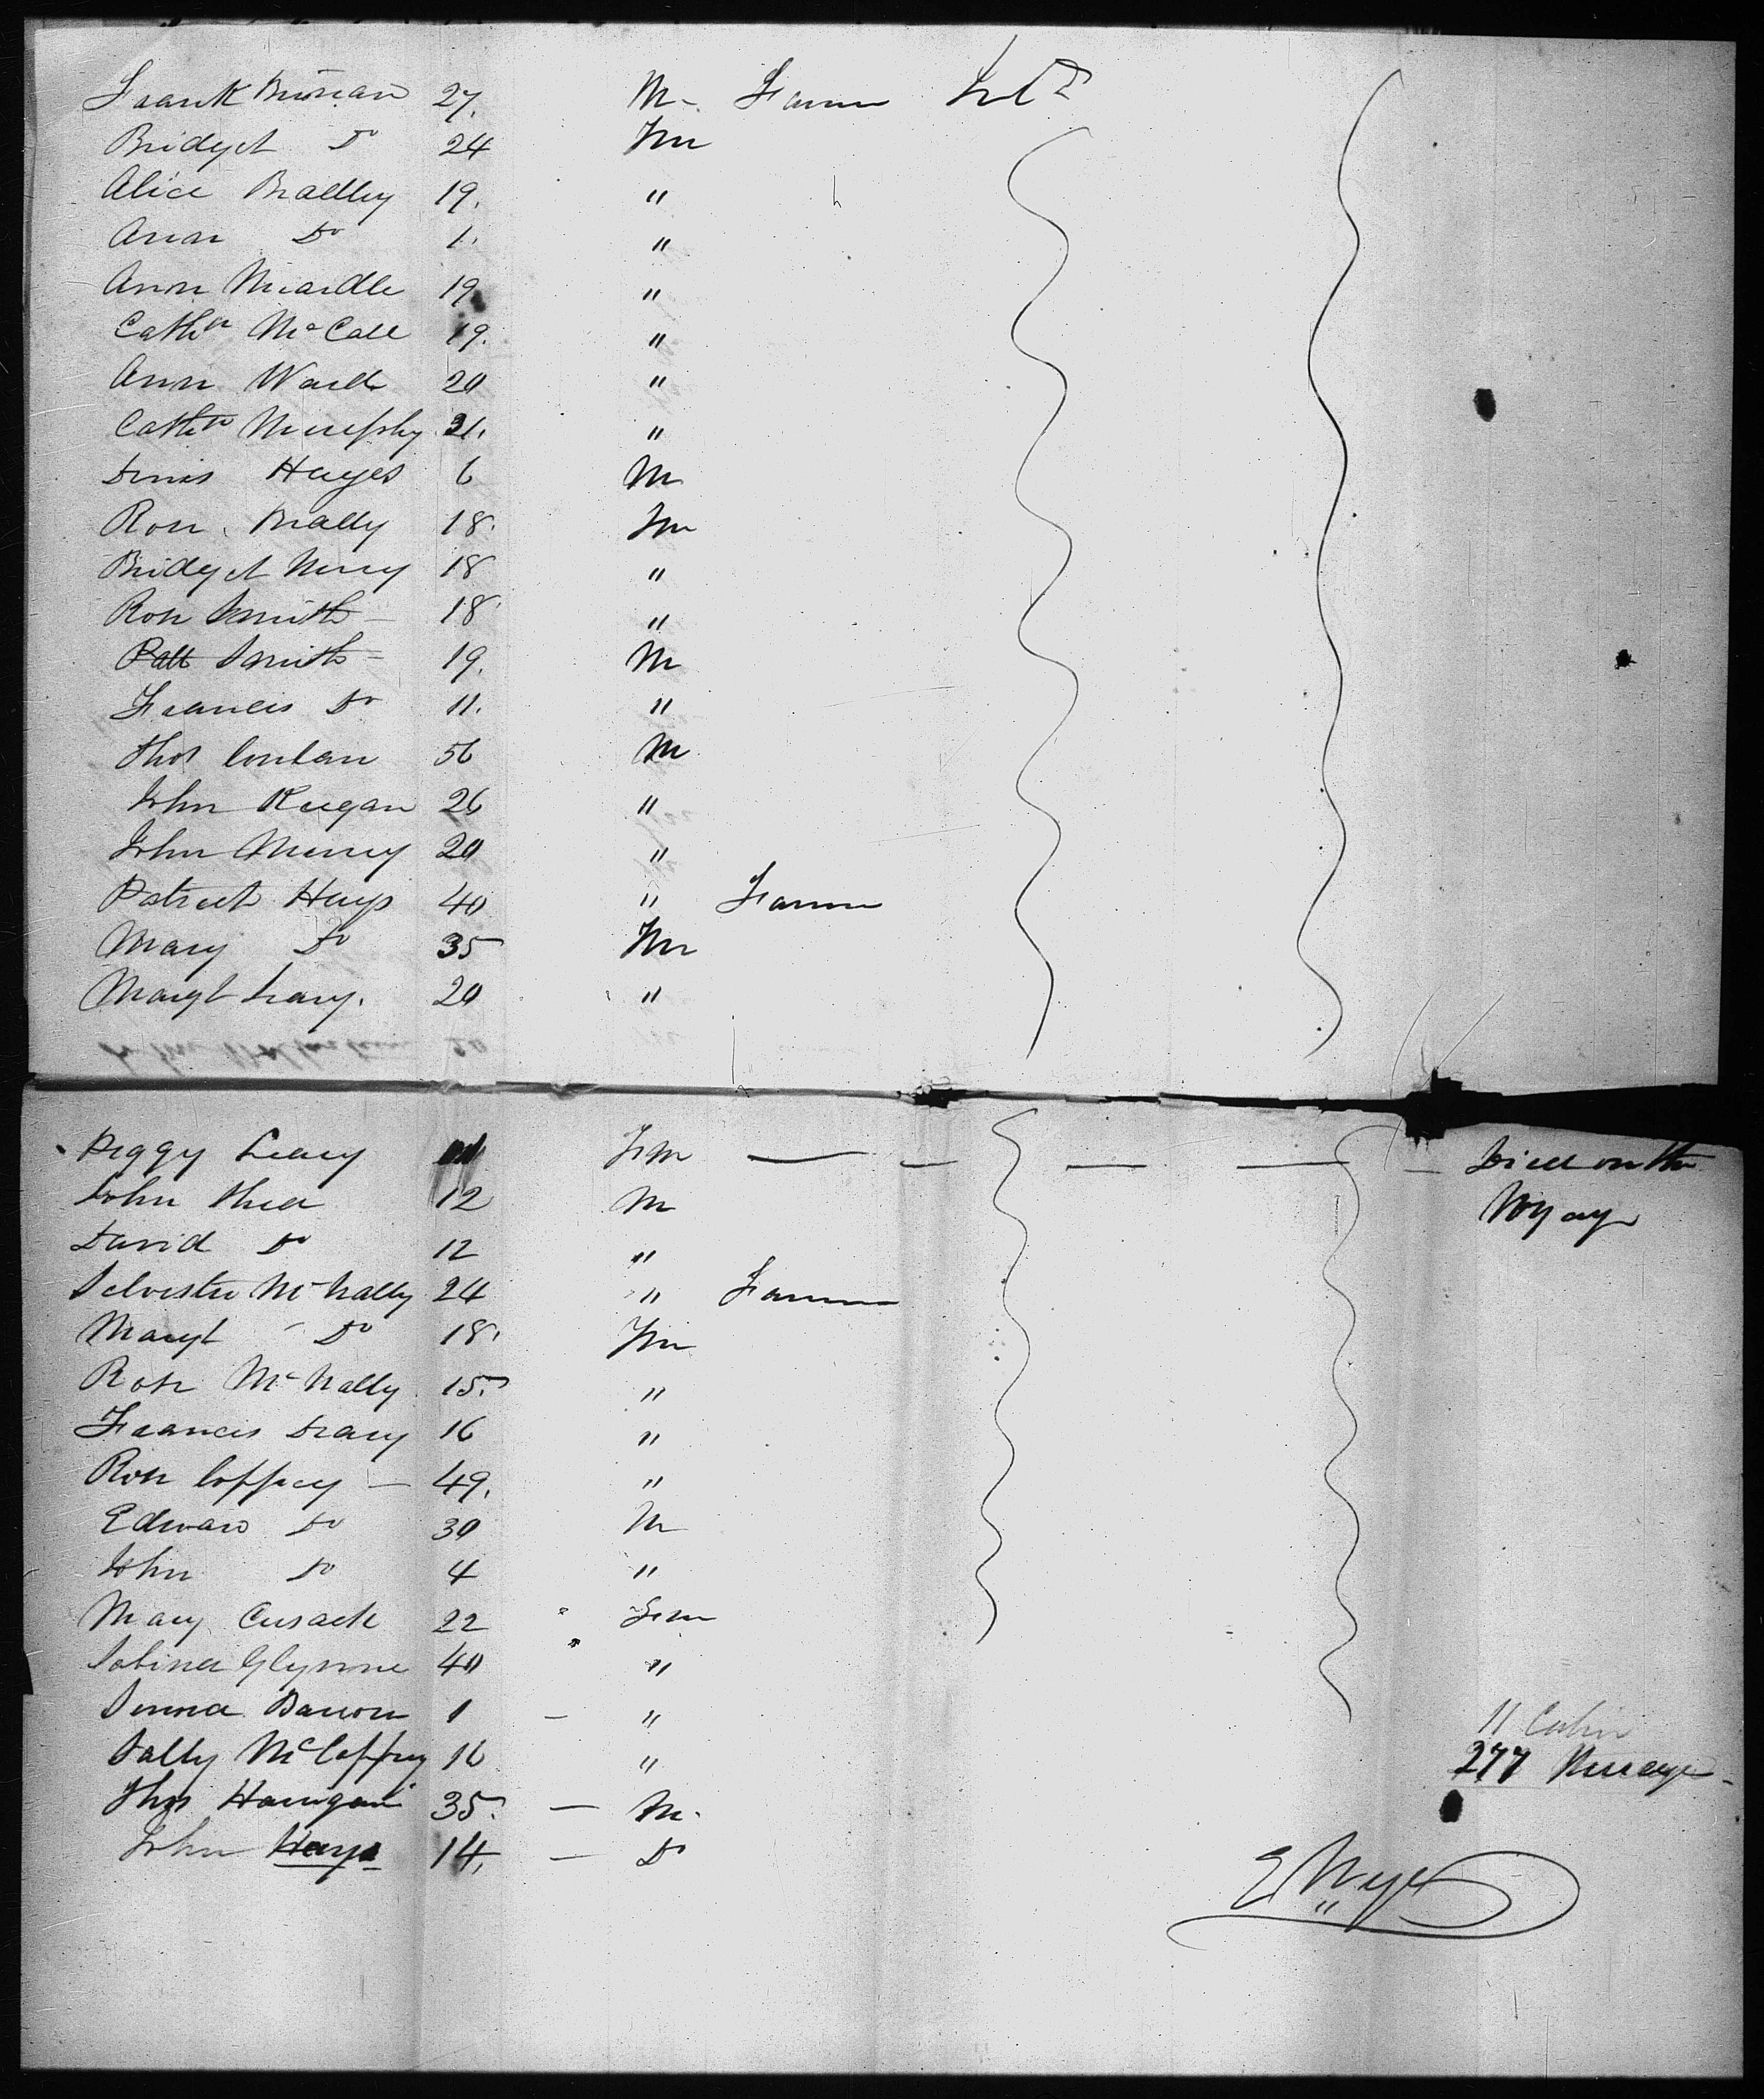 Frank 27. M- Farmer Irld
Bridget Do 24 Fm
Alice Bradley 19. "
Ann Do 1. "
Ann McArdle 19 "
Cathn McCall 19. "
Ann Ward 20 "
Cathn Murphy 31. "
Denis Hayes 6 M
Rose 18. Fm
Bridget 18 "
Rose Smith - 18 "
Patt Smith - 19. M
Francis Do 11. "
Thos Conlan 56 M
John Keegan 26 "
John 20 "
Patrick Hays 40 " Farmer
Mary Do 35 Fm
Margt Leary. 20 "
Peggy Leary Fm — — — — — Died on the
John Shea 12 M Voyage
David Do 12 "
Silvester McNally 24 " Farmer
Margt - Do 18. Fm
Rose McNally 15. "
Francis 16 "
Rose Coffrey — 49. "
Edward Do 30 M
John Do 4 "
Mary Cusack 22 Fem
Sabina Glynne 40 "
Barron 1 - "
11 Cabin
Sally McCaffrey 16 "
277 Steerage
Thos Hannigan 35. — M.
John Hays 14. — Do
E Nye